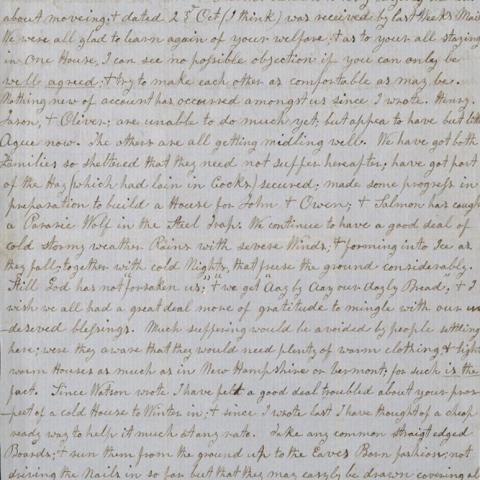 about moveing; & dated 23d Oct (I think) was received by last Weeks Mail
We were all glad to learn again of your welfare; & as to your all staying
in One House, I can see no possible objection if you can only be
well agreed; & try to make each other as comfortable as may be.
Nothing new of account has occurred amongst us since I wrote. Henry,
Jason, & Oliver; are unable to do much yet; but appea to have but little
Ague now. The others are all getting midling well. We have got both
Families so sheltered that they need not suffer hereafter; have got part
of the Hay (which had lain in Cocks) secured; made some progress in
preparation to build a House for John & Owen; & Salmon has caugh
a Pararie Wolf in the Steel Trap. We continue to have a good deal of
cold stormy weather. Rains with severe Winds, & forming into Ice as
they fall; together with cold Nights, that freese the ground considerably.
Still God has not forsaken us; & we get "day by day our dayly Bread"; & I
wish we all had a great deal more of gratitude to mingle with our un
deserved blessings. Much suffering would be avoided by people settling
here; were they aware that they would need plenty of warm clothing & light
warm Houses as much as in New Hampshire or Vermont; for such is the
fact. Since Watson wrote I have felt a good deal troubled about your pros-
-pect of a cold House to Winter in; & since I wrote last I have thought of a cheap
ready way to help it much at any rate. Take any common straigt edged
Boards; & run them from the ground up to the Eaves Barn fashion; not
driving the Nails in so far but that they may easyly be drawn covering al